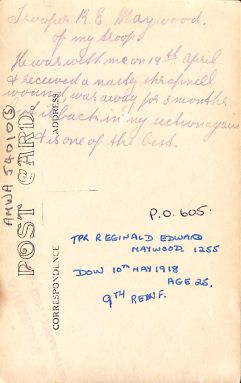 Trooper R. E. Maywood.
of my troop
He was with me on 19th April
& received a nasty shrapnell
wound, was away for 3 months
is back in my section again
& is one of the best.
AMWA 54010(S)
POST CARD
ADDRESS
CORRESPONDENCE
P.O. 605.
TPR REGINALD EDWARD
MAYWOOD. 1255
DOW 10TH MAY 1918
AGE 25.
9TH REINF.